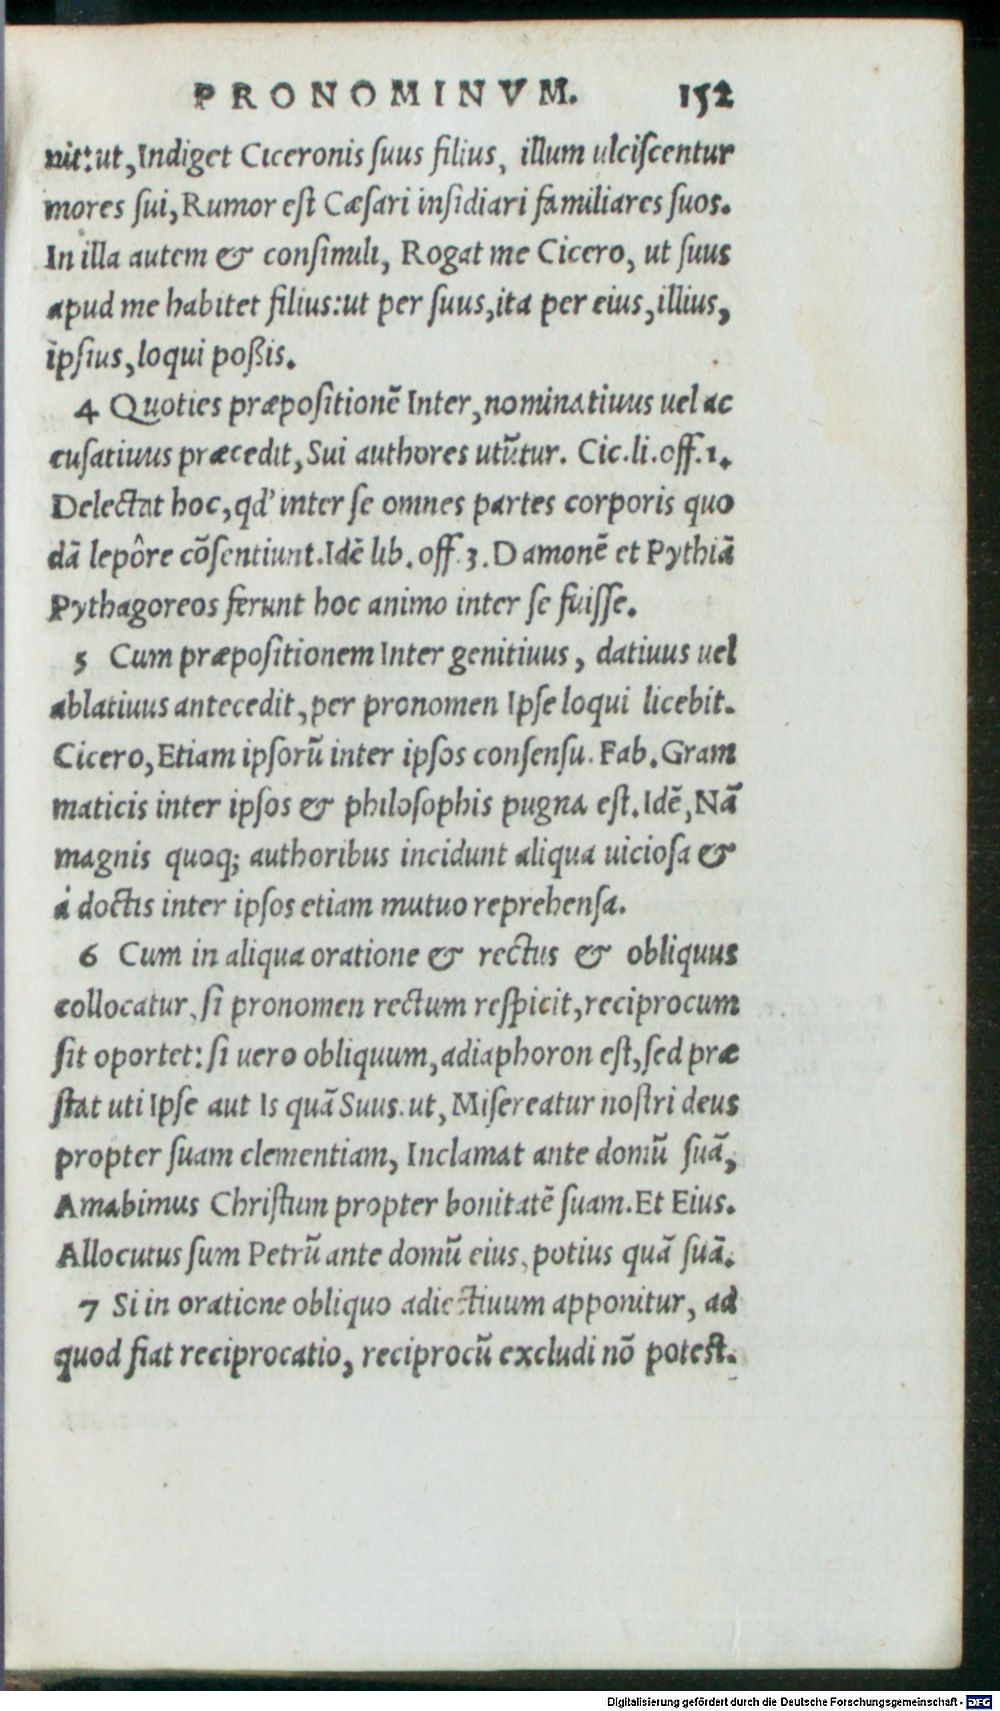 PRONOMINVM. 152
nit: ut, Indiget Ciceronis ſuus filius, illum ulciſcentur
mores ſui, Rumor eſt Cæſari inſidiari familiares ſuos.
In illa autem & conſimili, Rogat me Cicero, ut ſuus
apud me habitet filius: ut per ſuus, ita per eius, illius,
ipſius, loqui poßis.
4 Quoties præpoſitionē Inter, nominatiuus uel ac
cuſatiuus præcedit, Sui authores utūtur. Cic. li. off. 1.
Delectat hoc, qd' inter ſe omnes partes corporis quo
dā lepôre cōſentiunt. Idē lib. off. 3. Damonē et Pythiā
Pythagoreos ferunt hoc animo inter ſe fuiſſe.
5 Cum præpoſitionem Inter genitiuus, datiuus uel
ablatiuus antecedit, per pronomen Ipſe loqui licebit.
Cicero, Etiam ipſorū inter ipſos conſenſu. Fab. Gram
maticis inter ipſos & philoſophis pugna eſt. Idē, Nā
magnis quoq; authoribus incidunt aliqua uicioſa &
à doctis inter ipſos etiam mutuo reprehenſa.
6 Cum in aliqua oratione & rectus & obliquus
collocatur, ſi pronomen rectum reſpicit, reciprocum
ſit oportet: ſi uero obliquum, adiaphoron eſt, ſed præ
ſtat uti Ipſe aut Is quā Suus. ut, Miſereatur noſtri deus
propter ſuam clementiam, Inclamat ante domū ſuā,
Amabimus Chriſtum propter bonitatē ſuam. Et Eius.
Allocutus ſum Petrū ante domū eius, potius quā ſuā.
7 Si in oratione obliquo adiectiuum apponitur, ad
quod fiat reciprocatio, reciprocū excludi nō poteſt.
Digitalisierung gefördert durch die Deutsche Forschungsgemeinschaft - DFG